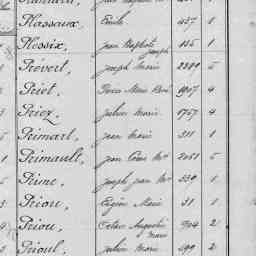 Plassaux, Emile 437 1
Plessix, Jean Baptiste Joseph 155 1
Prévert, Joseph Marie 2289 5
Priet, Pierre Marie René 1907 4
Priez, Julien Marie 1757 4
Primart, Jean Marie 311 1
Primault, Jean Marie 2051 5
Prime, Joseph Jean Mie 339 1
Priou, Eugène Marie 31 1
Priou, Octave Augustin Marie 904 2
Prioul, Julien Marie 499 2